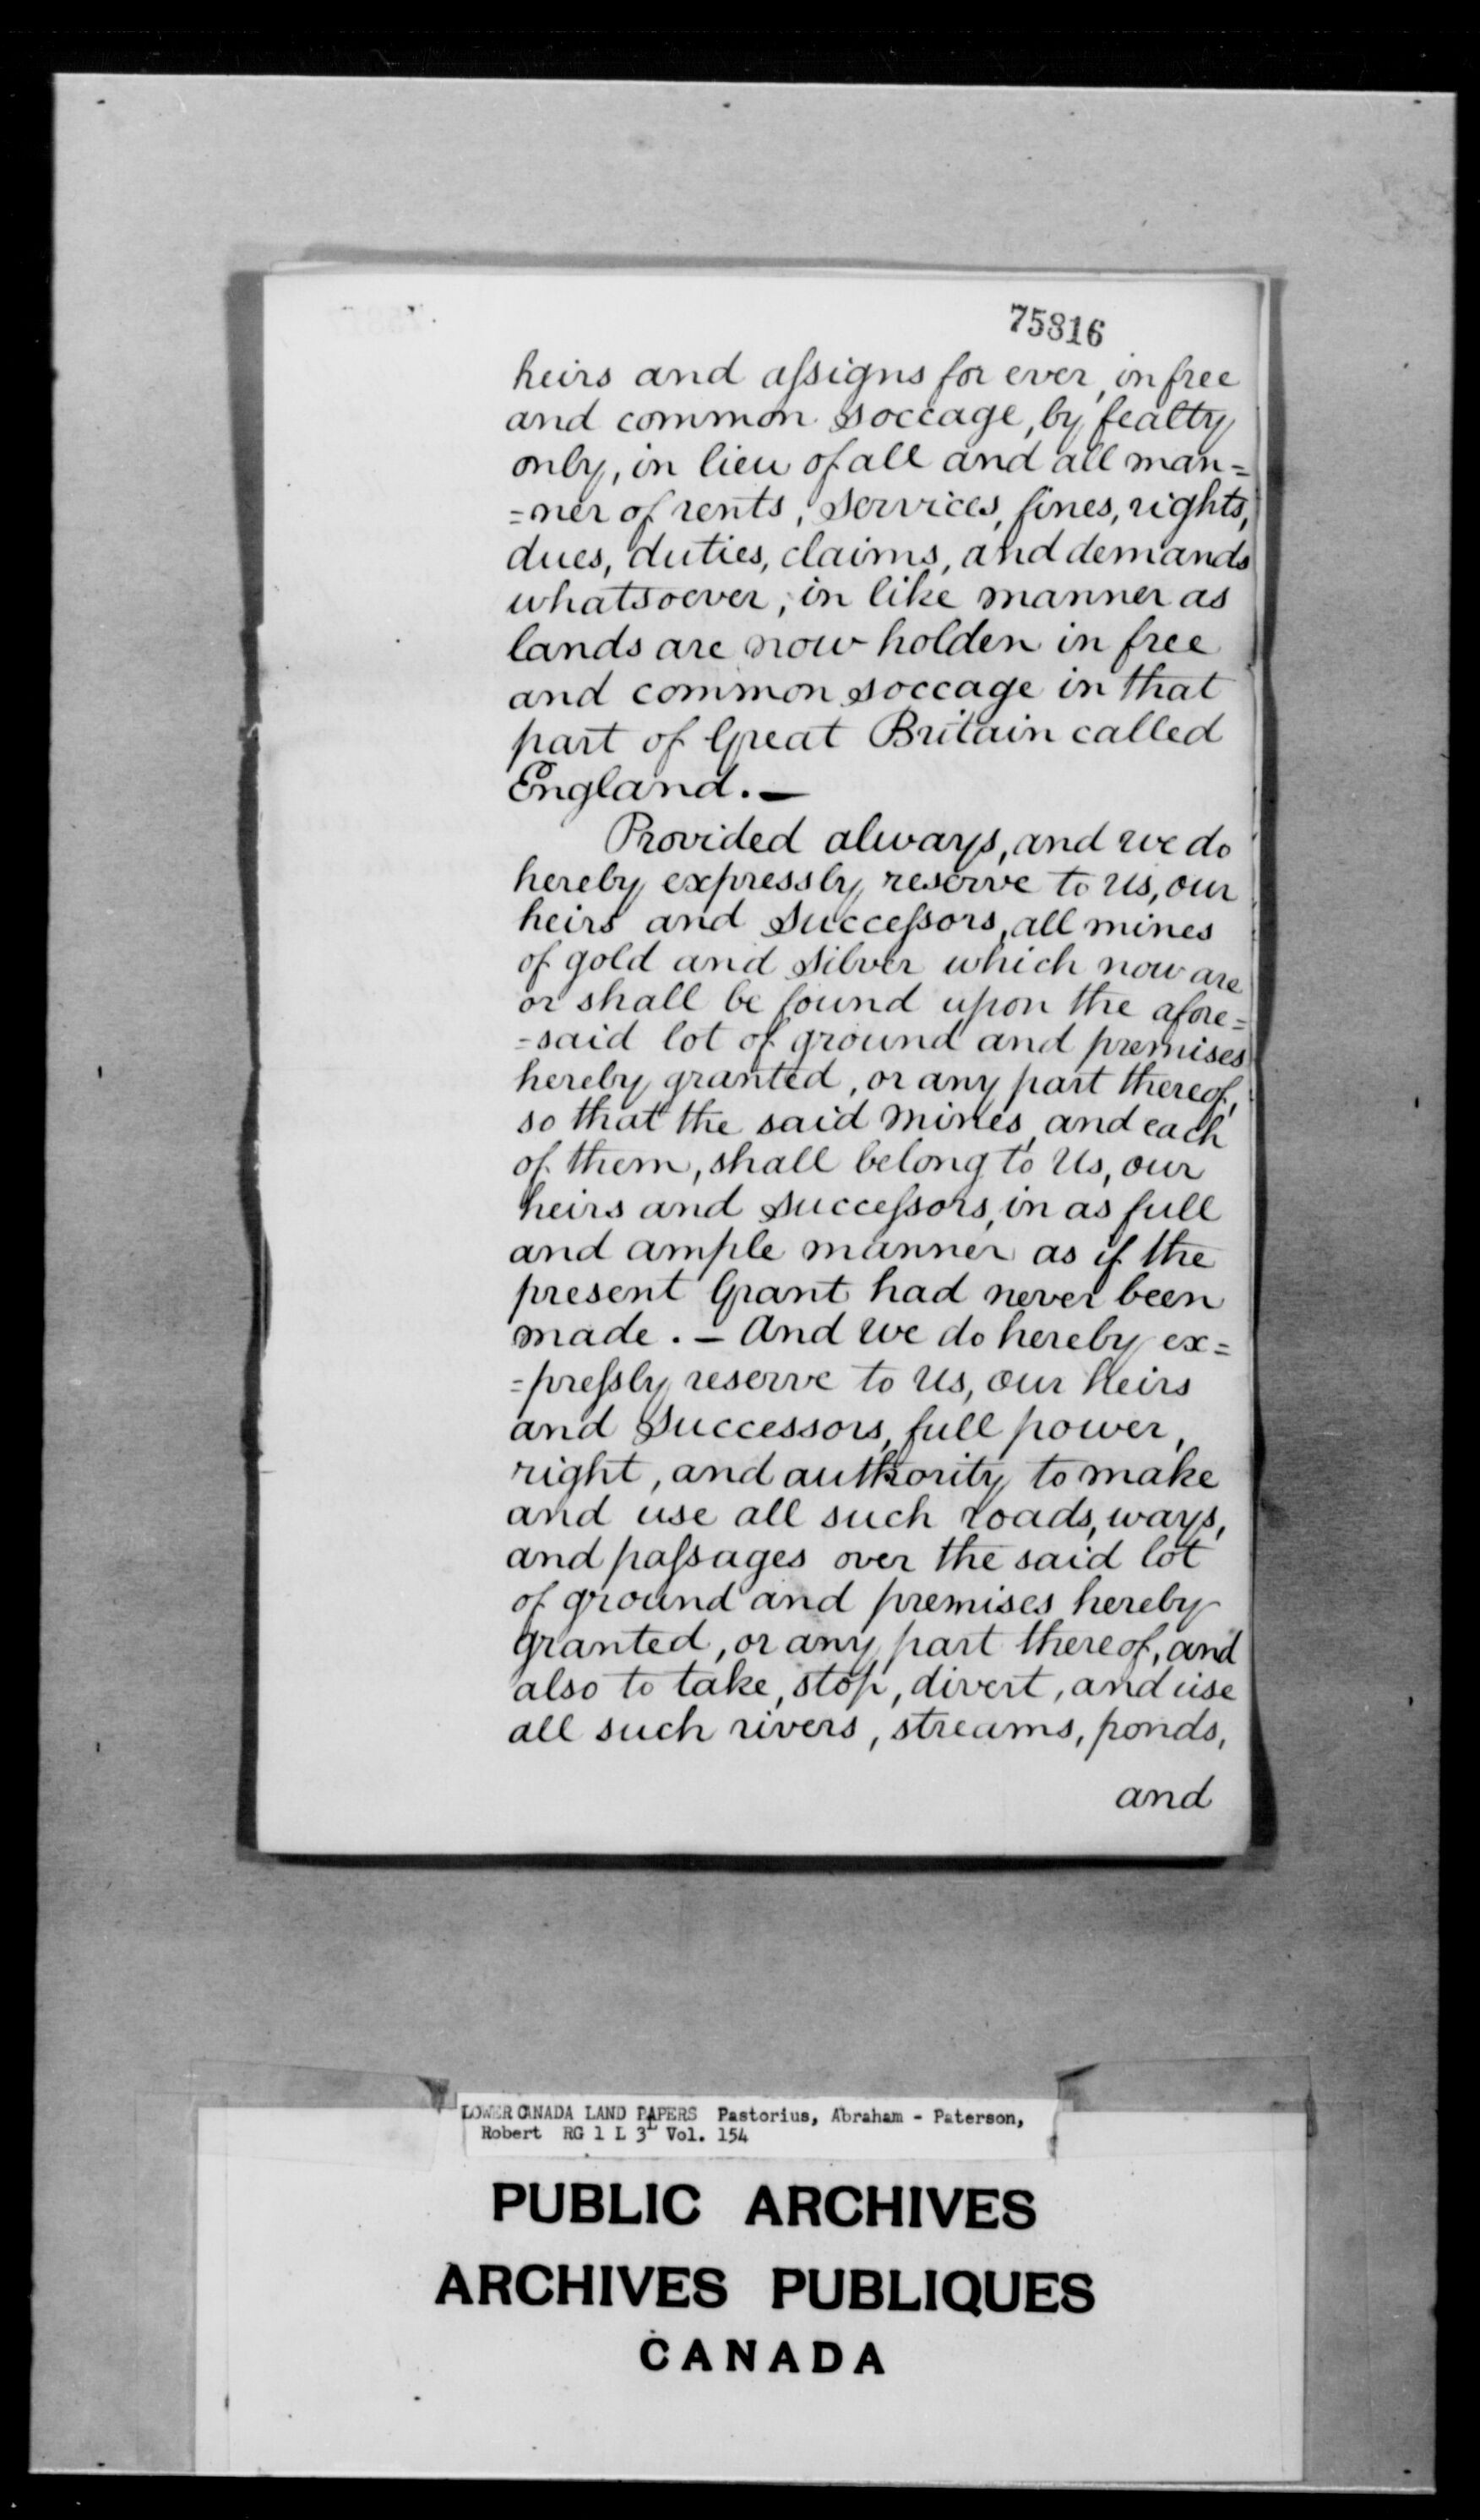 75816
heirs and aſsigns for ever, in free
and common soccage, by fealty
only, in lieu of all and all man=
=ner of rents, services, fines, rights,
dues, duties, claims, and demands
whatsoever, in like manner as
lands are now holden in free
and common soccage in that
part of Great Britain called
England. —
Provided always, and we do
hereby expressly reserve to Us, our
heirs and Succeſsors, all mines
of gold and silver which now are
or shall be found upon the afore=
=said lot of ground and premises
hereby granted, or any part thereof,
so that the said mines, and each
of them, shall belong to Us, our
heirs and succeſsors, in as full
and ample manner as if the
present Grant had never been
made. — And we do hereby ex=
=preſsly reserve to Us, our heirs
and Successors, full power,
right, and authority to make
and use all such roads, ways,
and paſsages over the said lot
of ground and premises hereby
granted, or any part thereof, and
also to take, stop, divert, and use
all such rivers, streams, ponds,
and
LOWER CANADA LAND PAPERS Pastorius, Abraham - Paterson,
Robert RG 1 L 3L Vol. 154
PUBLIC ARCHIVES
ARCHIVES PUBLIQUES
CANADA